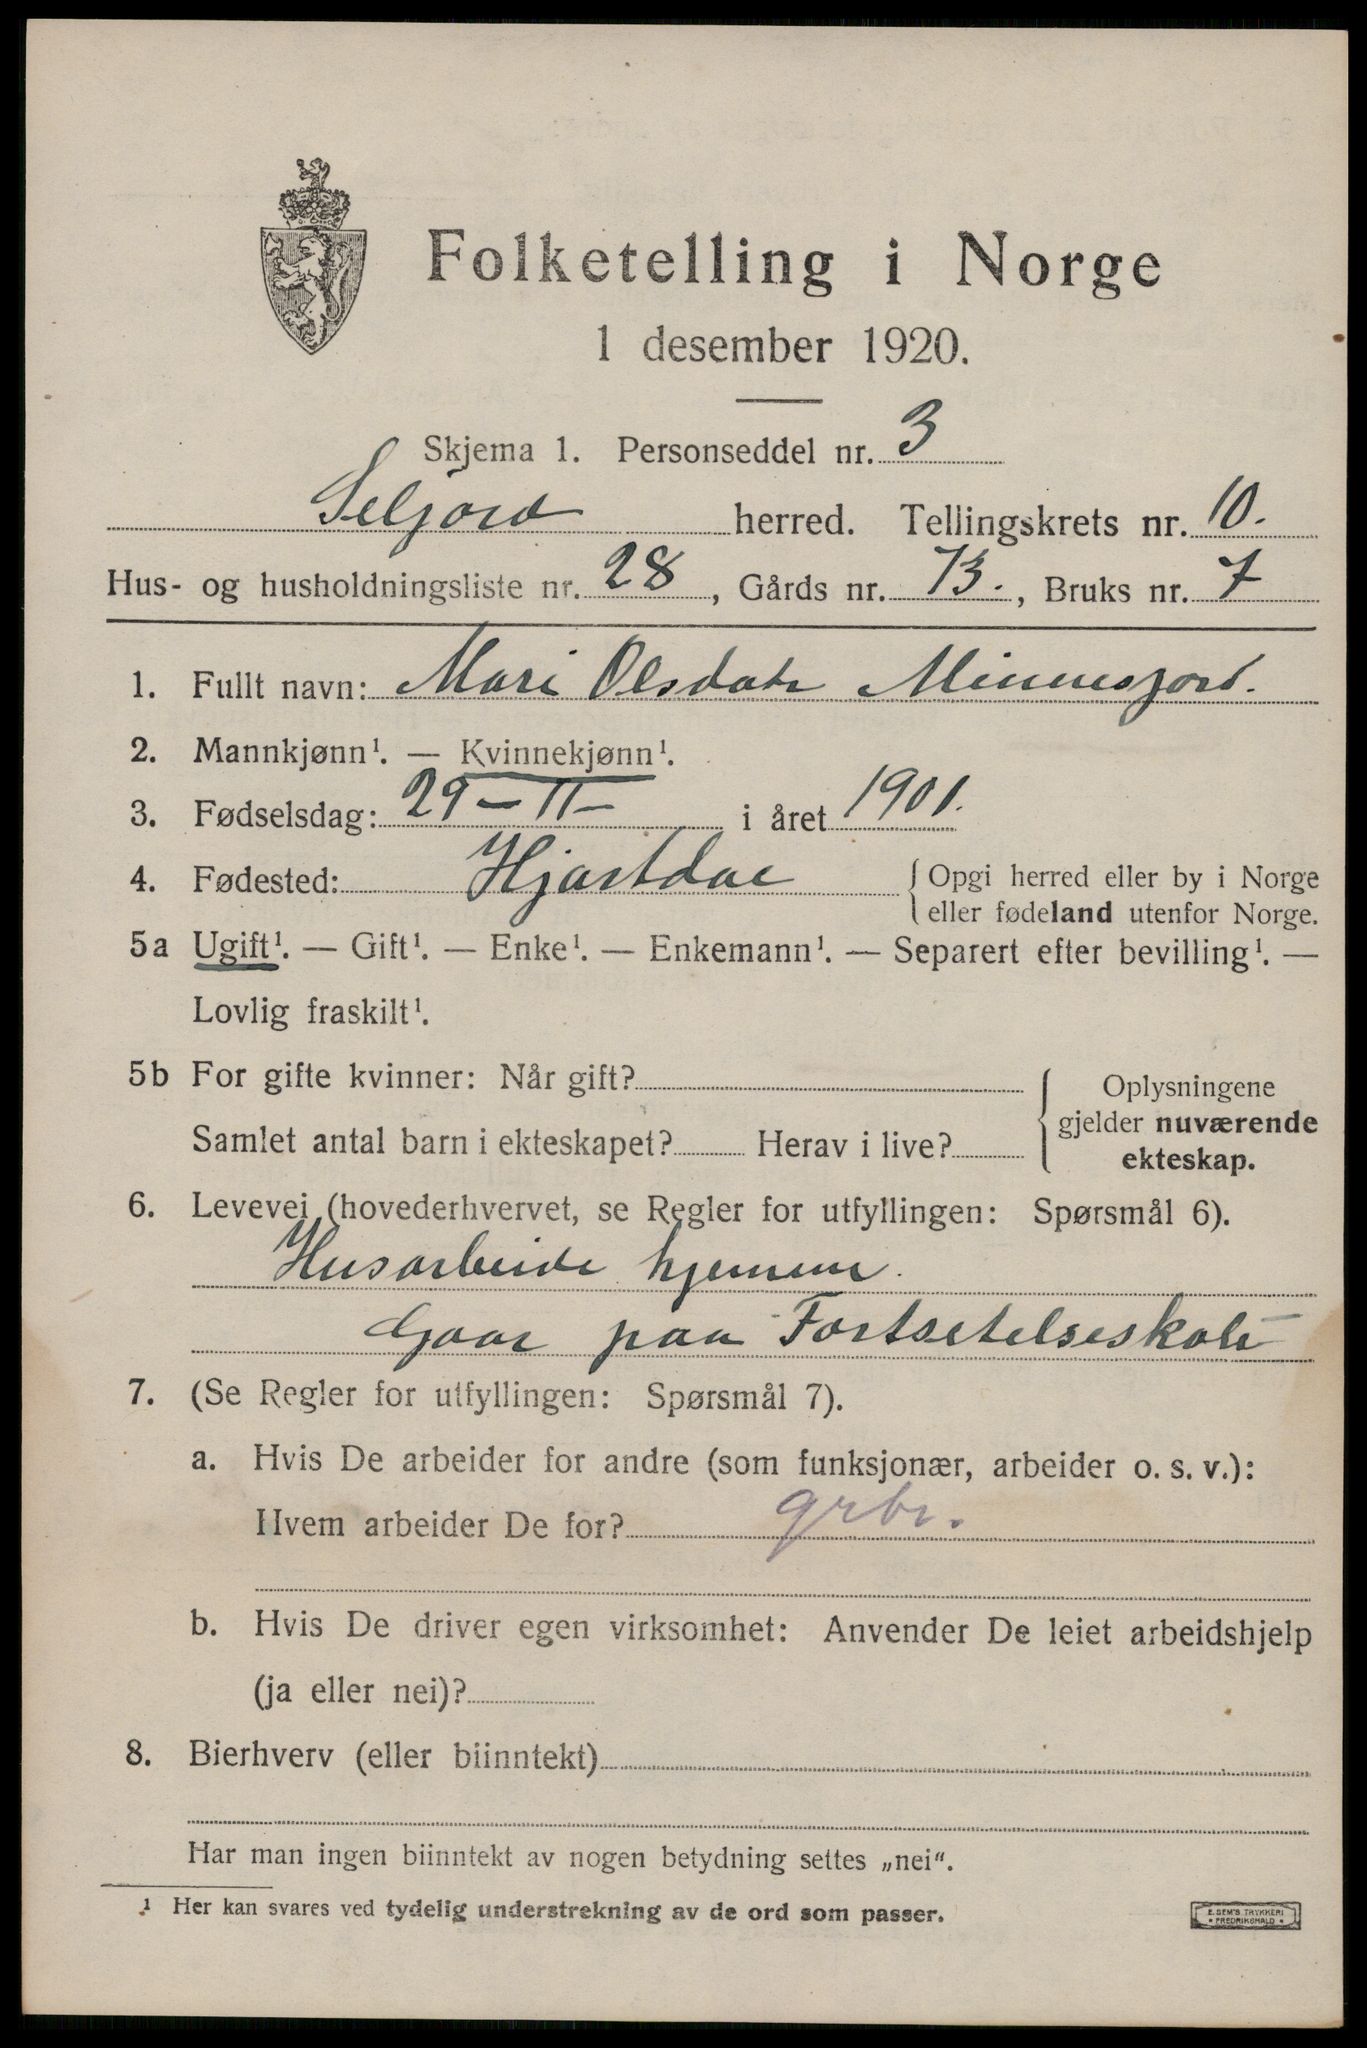 Folketelling i Norge
1 desember 1920.
Skjema 1. Personseddel nr. 3
Seljord herred. Tellingskrets nr. 10.
Hus- og husholdningsliste nr. 28, Gårds nr. 73., Bruks nr. 7
1. Fullt navn: Mari Olsdatr Minnesjord.
2. Mannkjønn¹. — Kvinnekjønn¹.
3. Fødselsdag: 29 – 11 – i året 1901.
4. Fødested: Hjartdal { Opgi herred eller by i Norge
eller fødeland utenfor Norge.
5a Ugift¹. — Gift¹. — Enke¹. — Enkemann¹. — Separert efter bevilling¹. —
Lovlig fraskilt¹.
5b For gifte kvinner: Når gift?
Samlet antal barn i ekteskapet? Herav i live?
Oplysningene
gjelder nuværende
ekteskap.
6. Levevei (hovederhvervet, se Regler for utfyllingen: Spørsmål 6).
Husarbeide hjemme.
Gaar paa Fortsetelseskole
7. (Se Regler for utfyllingen: Spørsmål 7).
a. Hvis De arbeider for andre (som funksjonær, arbeider o. s. v.):
Hvem arbeider De for? grbr.
b. Hvis De driver egen virksomhet: Anvender De leiet arbeidshjelp
(ja eller nei)?
8. Bierhverv (eller biinntekt)
Har man ingen biinntekt av nogen betydning settes „nei“.
¹ Her kan svares ved tydelig understrekning av de ord som passer.
E. SEM'S TRYKKERI
• FREDRIKSHALD •